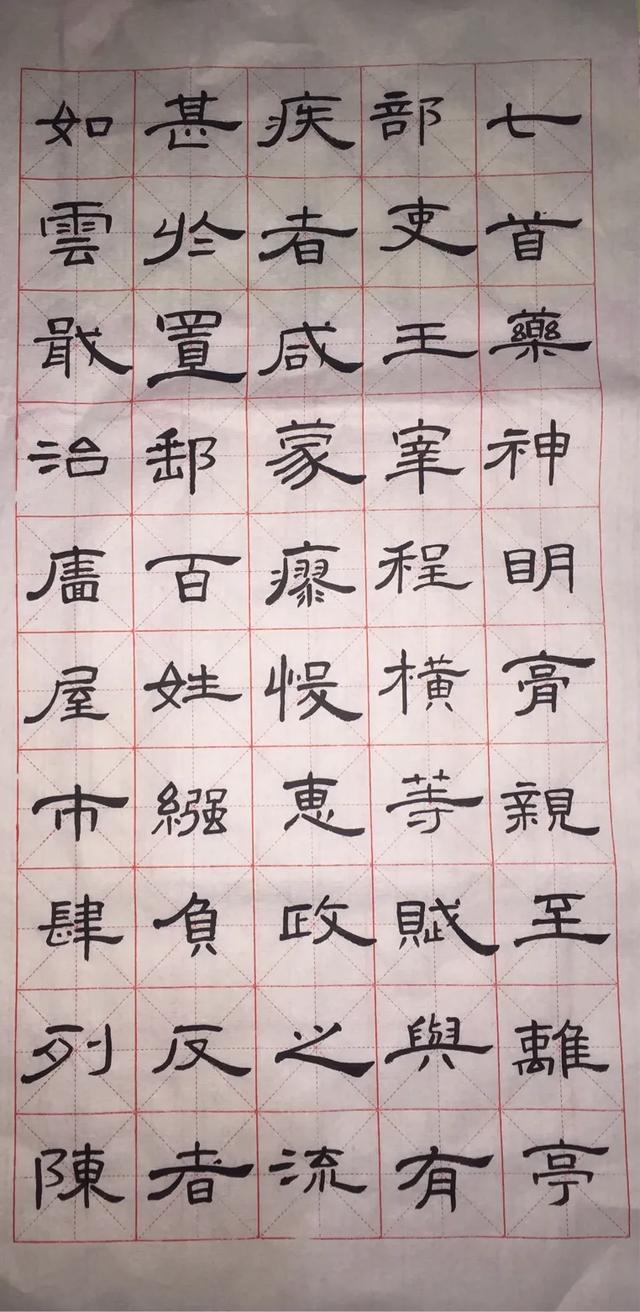 七首藥神眀膏親至離亭
部吏王宰程橫等賦與有
疾者咸蒙瘳悛惠政之流
甚於置郵百姓繦負反者
如雲戢治廧屋市肆列陳